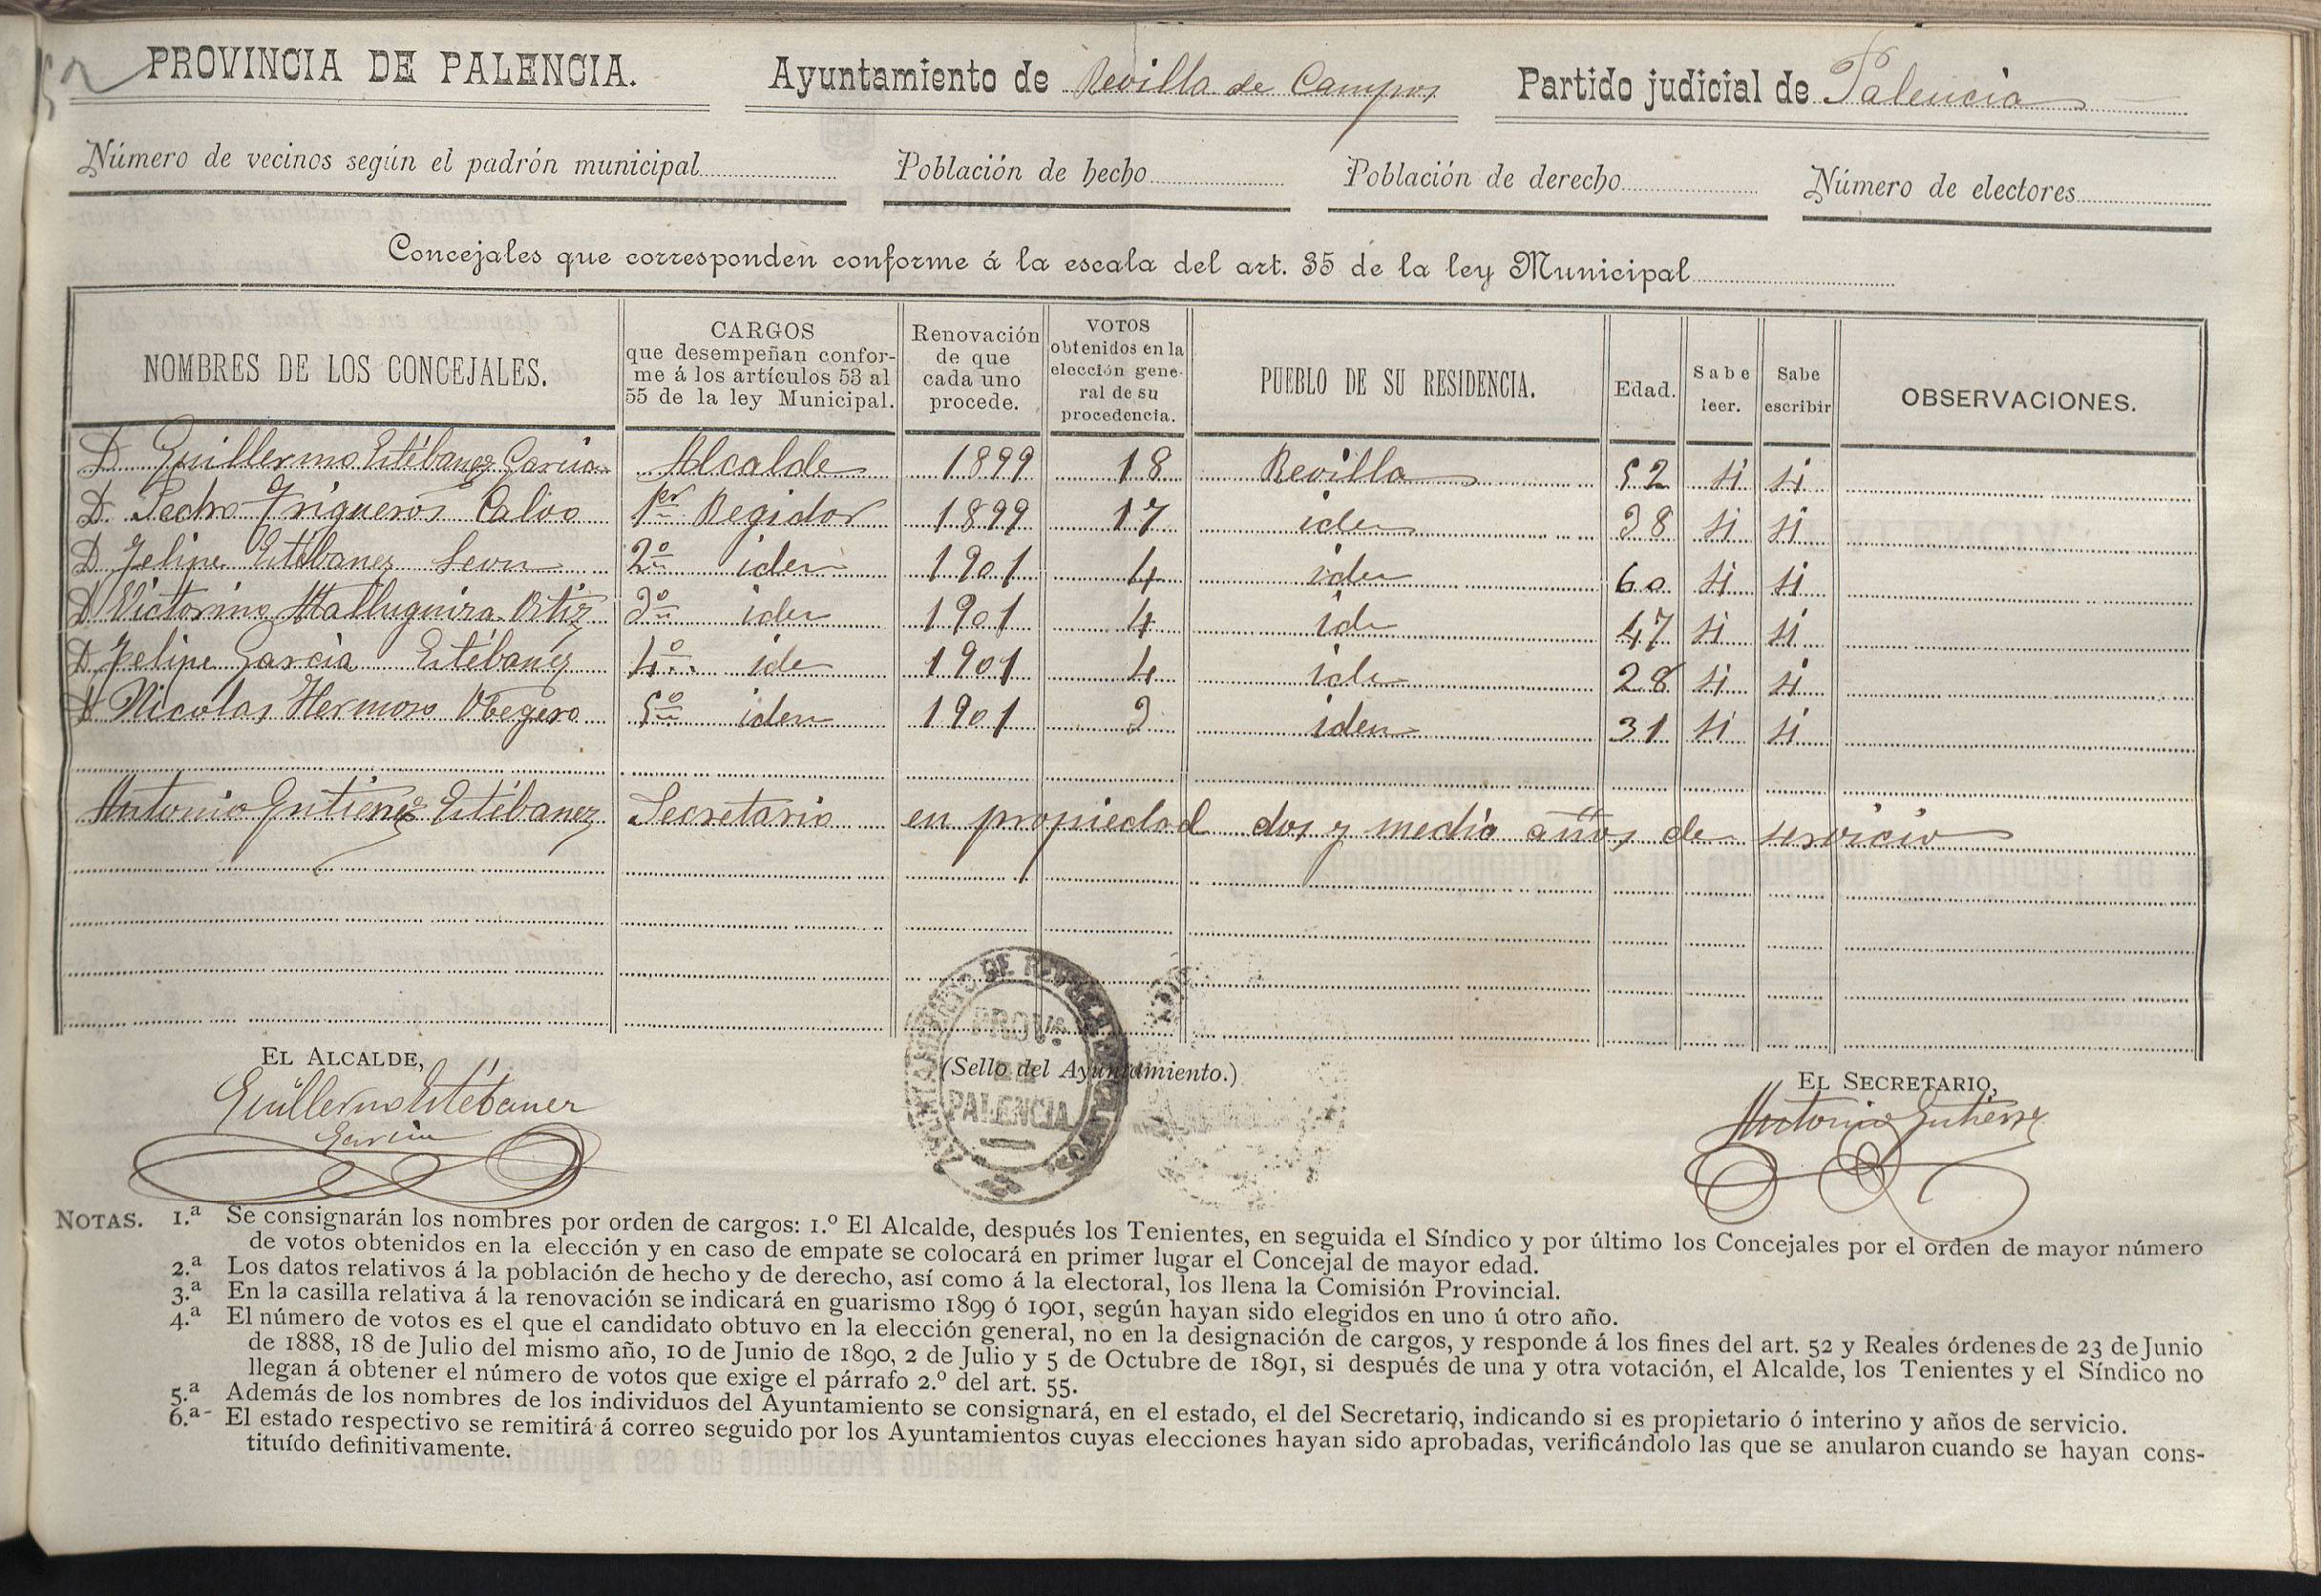 PROVINCIA DE PALENCIA. Ayuntamiento de Revilla de Campos Partido judicial de Palencia
Número de vecinos según el padrón municipal Población de hecho Población de derecho Número de electores
Concejales que corresponden conforme á la escala del art. 35 de la ley Municipal
NOMBRES DE LOS CONCEJALES. CARGOS que desempeñan confor-me á los artículos 53 al 55 de la ley Municipal. Renovación de que cada uno procede. VOTOS obtenidos en la elección gene-ral de su procedencia. PUEBLO DE SU RESIDENCIA. Edad. Sabe leer. Sabe escribir OBSERVACIONES.
D Guillermo Estébanez Garcia Alcalde 1899 18 Revilla 52 si si
D. Pedro Trigueros Calvo 1er Regidor 1899 17 iden 38 si si
D Felipe Estébanez Leon 2º iden 1901 4 iden 60 si si
D Victorino Ortiz 3º iden 1901 4 ide 47 si si
D Felipe Garcia Estébanez 4º ide 1901 4 ide 28 si si
D Nicolas Hermoso 5º iden 1901 3 iden 31 si si
Antonio Gutierrez Estébanez Secretario en propiedad dos y medio años, de servicio
EL ALCALDE, (Sello del Ayuntamiento.) EL SECRETARIO,
Guillermo Estébanez Garcia
Antonio Gutierrez
AYUNTAMIENTO DE REVILLA DE CAMPOS
PROVA DE PALENCIA
NOTAS. 1.ª Se consignarán los nombres por orden de cargos: 1.º El Alcalde, después los Tenientes, en seguida el Síndico y por último los Concejales por el orden de mayor número
de votos obtenidos en la elección y en caso de empate se colocará en primer lugar el Concejal de mayor edad.
2.ª Los datos relativos á la población de hecho y de derecho, así como á la electoral, los llena la Comisión Provincial.
3.ª En la casilla relativa á la renovación se indicará en guarismo 1899 ó 1901, según hayan sido elegidos en uno ú otro año.
4.ª El número de votos es el que el candidato obtuvo en la elección general, no en la designación de cargos, y responde á los fines del art. 52 y Reales órdenes de 23 de Junio
de 1888, 18 de Julio del mismo año, 10 de Junio de 1890, 2 de Julio y 5 de Octubre de 1891, si después de una y otra votación, el Alcalde, los Tenientes y el Síndico no
llegan á obtener el número de votos que exige el párrafo 2.º del art. 55.
5.ª Además de los nombres de los individuos del Ayuntamiento se consignará, en el estado, el del Secretario, indicando si es propietario ó interino y años de servicio.
6.ª El estado respectivo se remitirá á correo seguido por los Ayuntamientos cuyas elecciones hayan sido aprobadas, verificándolo las que se anularon cuando se hayan cons-
tituído definitivamente.